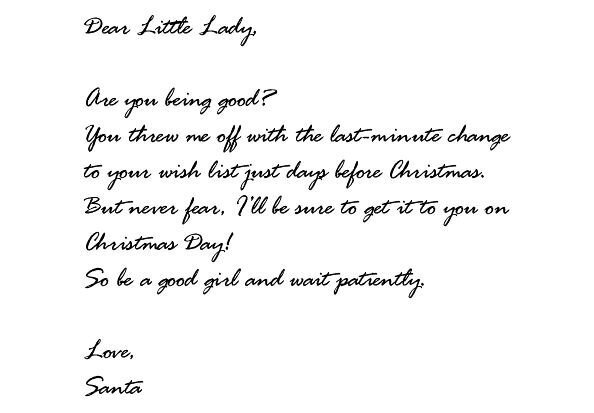 Dear Little Lady,
Are you being good?
You threw me off with the last-minute change
to your wish list just days before Christmas.
But never fear, I'll be sure to get it to you on
Christmas Day!
So be a good girl and wait patiently.
Love,
Santa